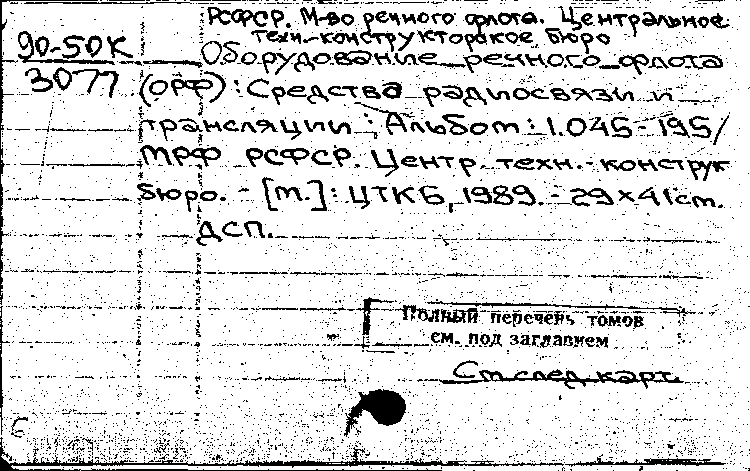 РСФСР. М-во речного флота. Центральное
техн.-конструкторское бюро
90-50К
3077
Оборудование речного флота
(ОРФ): Средства радиосвязи и
трансляции: Альбом: 1.045-195/
МРФ РСФСР. Центр. техн.-конструк
бюро. - [М.]: ЦТКБ, 1989. - 29×41см.
ДСП.
Полный перечень томов
см. под заглавием
См след. карт.
Б